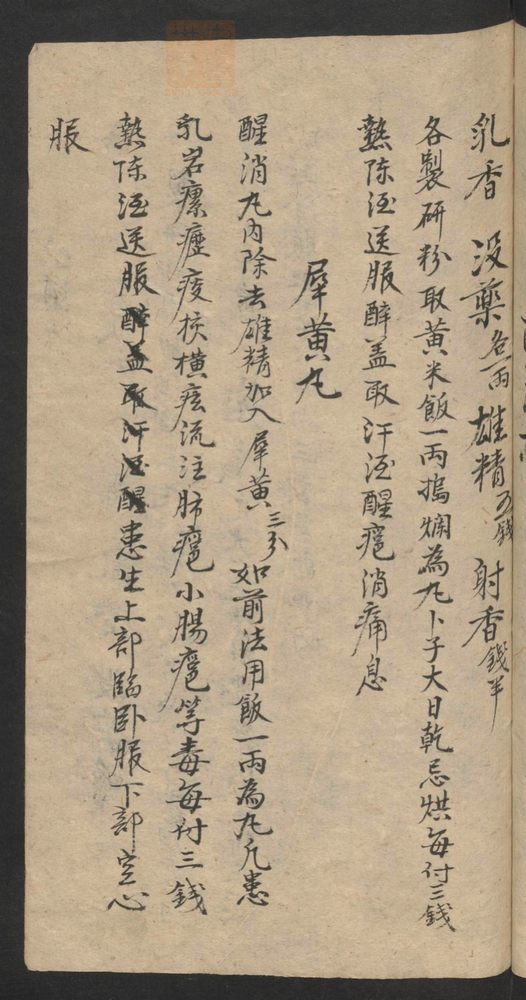 乳香 没藥各一兩 雄精五錢 射香錢半
各製研粉取黃米飯一兩搗爛為丸卜子大日乾忌烘每付三錢
熱陈酒送服醉盖取汗酒醒癰消痛息
犀黃丸
醒消丸內除去雄精加入犀黃三分如前法用飯一兩為丸凡患
乳岩瘰癧痰核橫痃流注肺癰小腸癰等毒每付三錢
熱陈酒送服醉盖取汗酒醒患生上部臨卧服下部空心
服